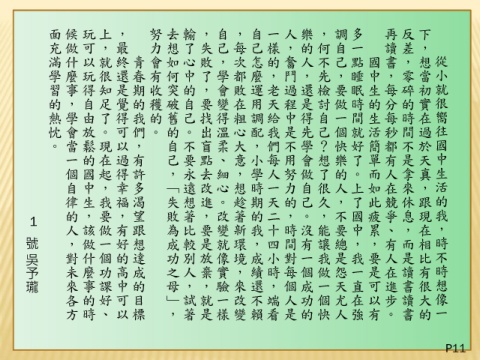 從小就很嚮往國中生活的我,時不時想像一
下,想當初實在過於天真,跟現在相比有很大的
反差,零碎的時間不是拿來休息,而是讀書讀書
再讀書,每分每秒都有人在競爭、有人在進步。
國中生的生活簡單而如此疲累,要是可以有
多一點睡眠時間就好了。上了國中,我一直在強
調自己,要做一個快樂的人,不要總是怨天尤人
,何不先檢討自己?想了很久,能讓我做一個快
樂的人,還是得先學會做自己。沒有一個成功的
人,奮鬥過程中是不用努力的,時間對每個人是
一樣的,老天給我們每人一天二十四小時,端看
自己怎麼運用調配,小學時期的我,成績還不賴
,每次都敗在粗心大意,想趁著新環境,來改變
自己,學會變得溫柔、細心。改變就像實驗一樣
,失敗了,要找出盲點去改進,要是放棄,就是
輸了心中的自己。不要永遠想著比較別人,試著
去想如何突破舊的自己,「失敗為成功之母」,
努力會有收穫的。
青春期的我們,有許多渴望跟想達成的目標
,最終還是覺得可以過得幸福,有好的高中可以
上,就很知足了。現在起,我要做一個功課好、
玩可以玩得自由放鬆的國中生,該做什麼事的時
候做什麼事,學會當一個自律的人,對未來各方
面充滿學習的熱忱。
1 號吳予瓏
P11